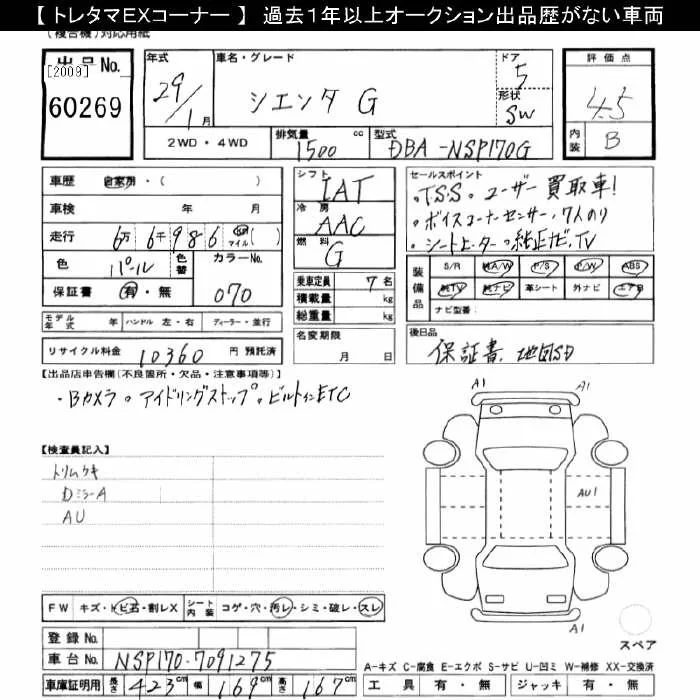 【 トレタマEXコーナー 】 過去1年以上オークション出品歴がない車両
(複合機)対応用紙
[2009]
出品 No.
60269
年式 29/1月
車名・グレード シエンタ G
ドア 5
形状 SW
評価点 4.5
内装 B
2WD・4WD
排気量 1500 cc
型式 DBA-NSP170G
車歴 自家用・( )
車検 年 月
走行 6万 6千 9 8 6 km マイル ( )
色 パール
色替
カラーNo. 070
保証書 有・無
モデル年式 年 ハンドル 左・右 ディーラー・並行
リサイクル料金 10360 円 預託済
シフト IAT
冷房 AAC
燃料 G
乗車定員 7 名
積載量 kg
総重量 kg
名変期限 月 日
セールスポイント
。TSS 。ユーザー買取車!
。ボイスコーナーセンサー・7人のり
。シートヒーター 。純正ナビ、TV
装備品
S/R 純A/W P/S P/W ABS
純TV 純ナビ 革シート 外ナビ エアB
ナビ型番:
後日品
保証書、地図SD
【出品店申告欄(不良箇所・欠品・注意事項等)】
・Bカメラ 。アイドリングストップ 。ビルトインETC
【検査員記入】
トリムウキ
DミラーA
AU
A1
A1
AU1
A1
スペア
FW キズ・トビ石・割レX
シート内装 コゲ・穴・汚レ・シミ・破レ・スレ
登録 No.
車台 No. NSP170-7091275
車庫証明用 長さ 423 cm 幅 169 cm 高さ 167 cm
A-キズ C-腐食 E-エクボ S-サビ U-凹ミ W-補修 XX-交換済
工具 有・無 ジャッキ 有・無